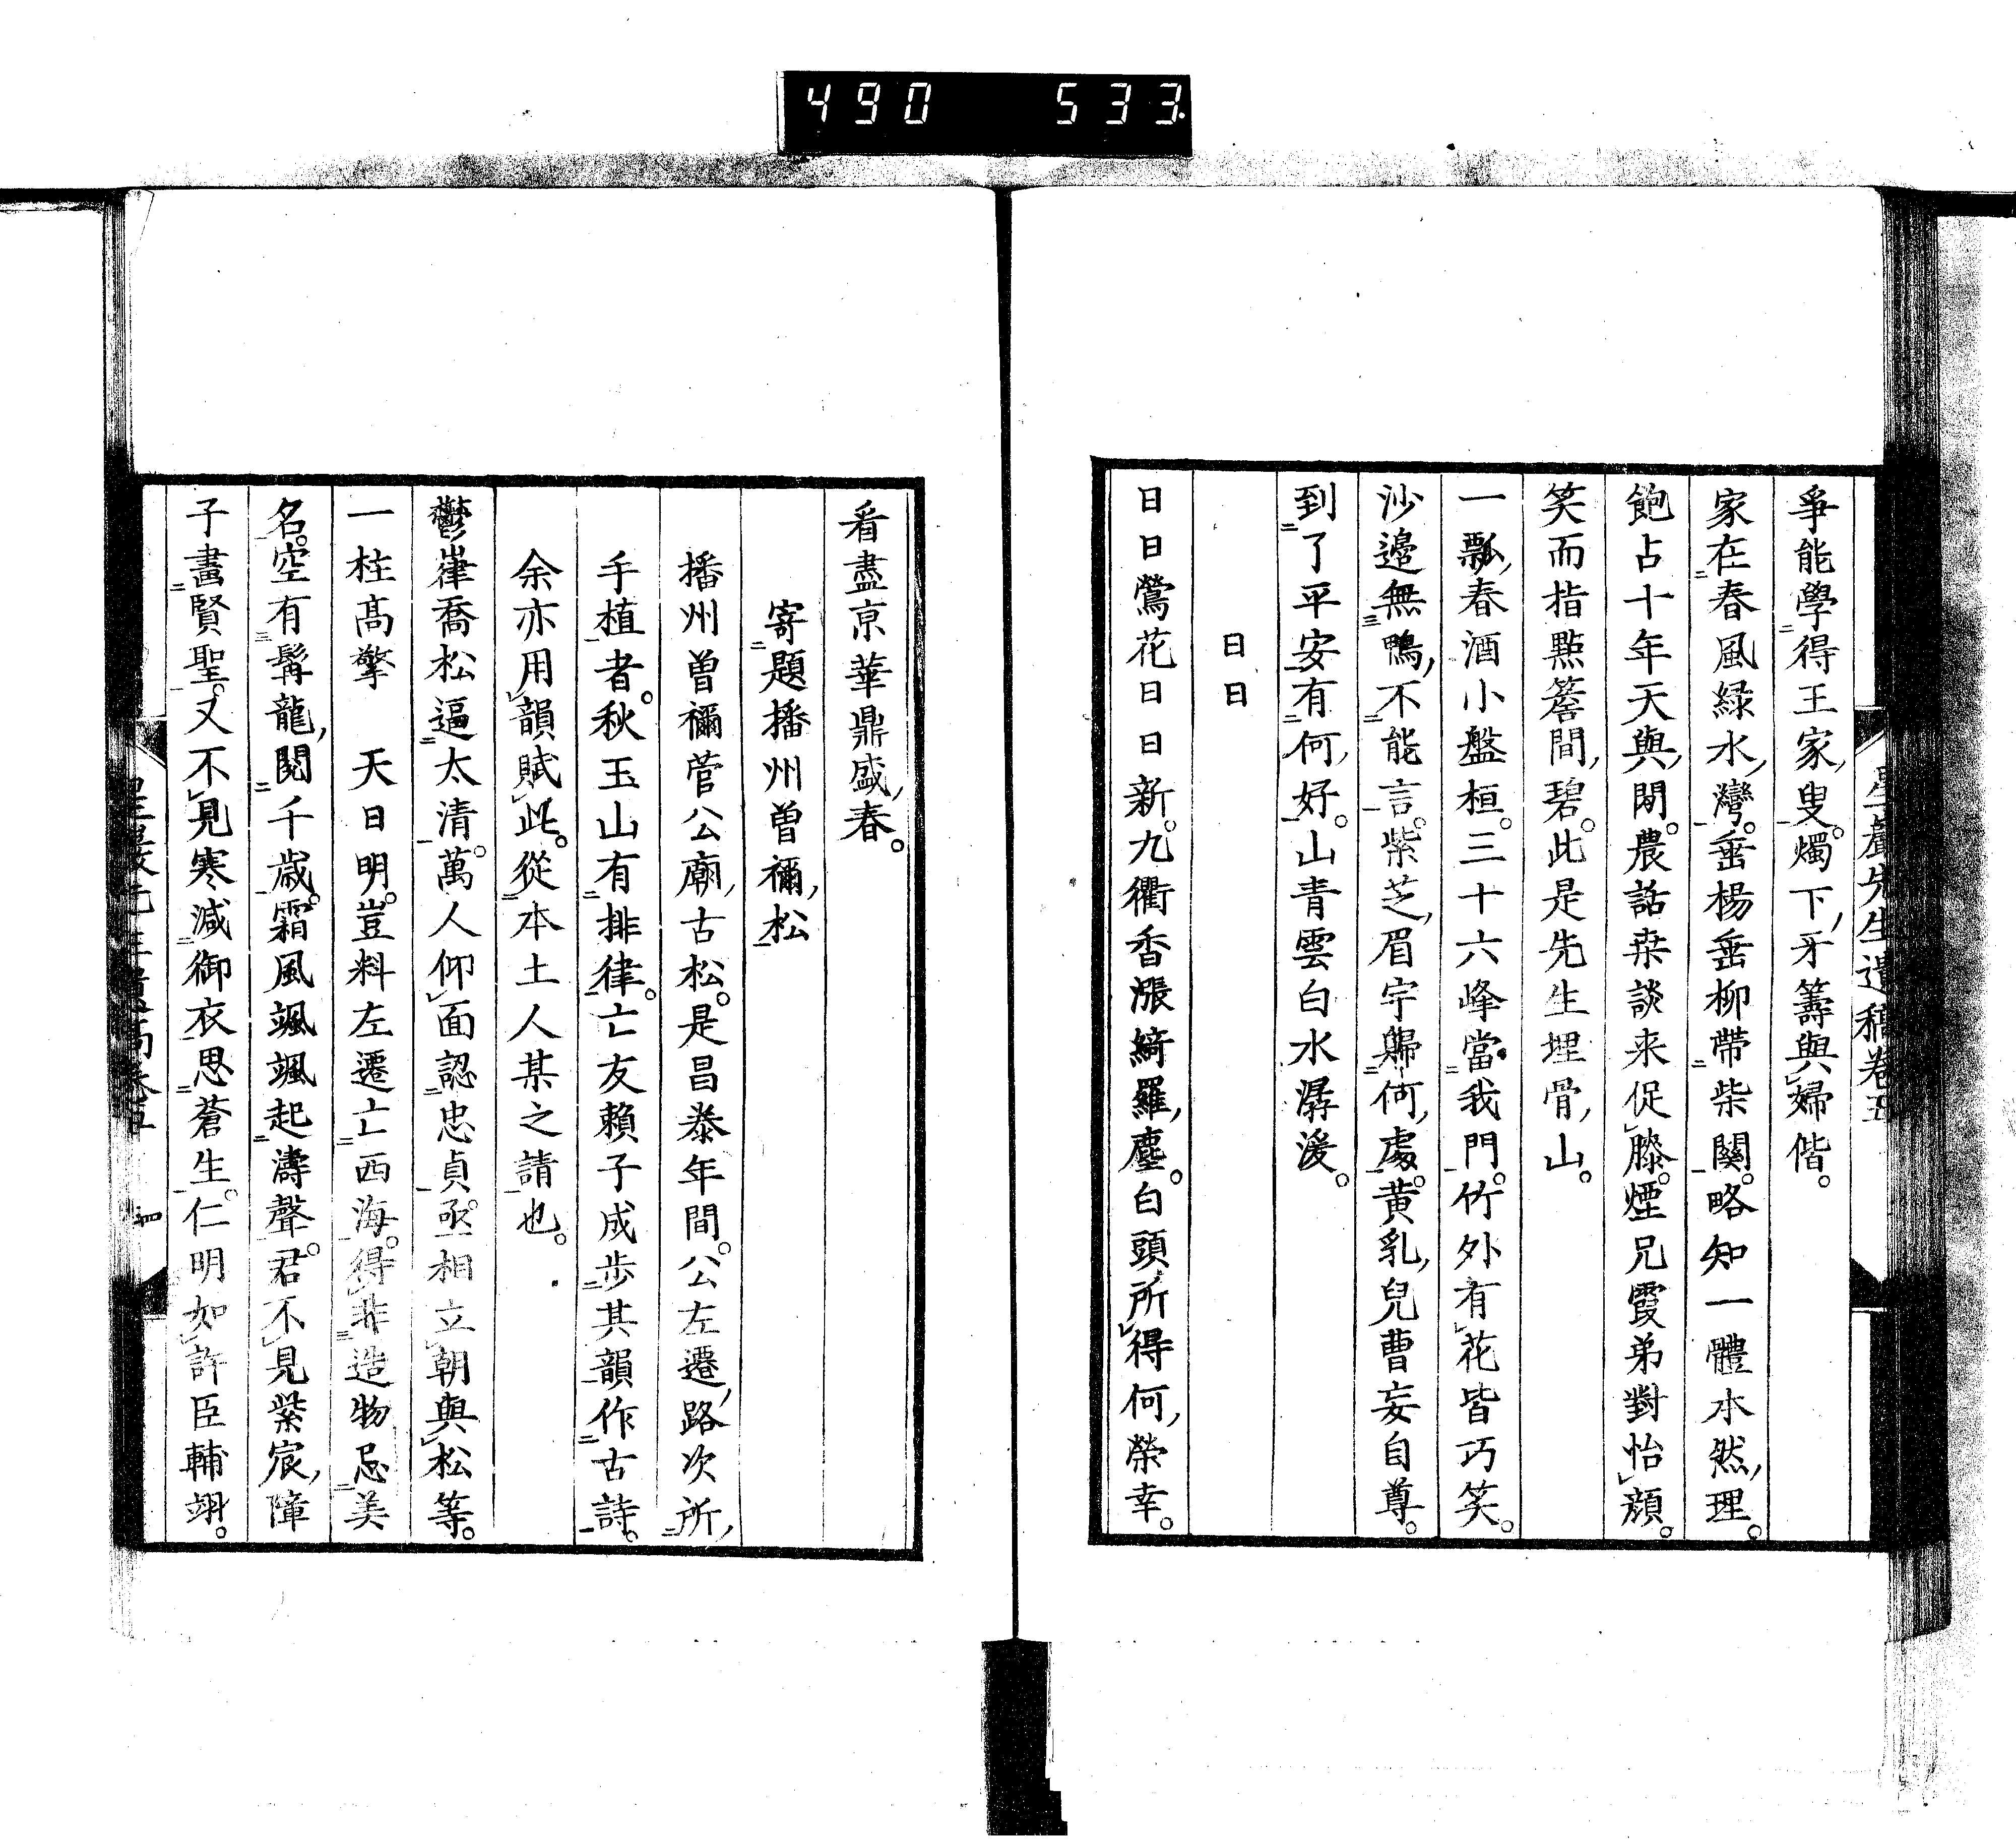 490 533
星巖先生遺稿卷五
爭能學得王家叟。燭下牙籌與婦偕。
家在春風綠水灣。垂楊垂柳帶柴關。略知一體本然理。
飽占十年天與閑。農話桒談来促膝。煙兄霞弟對怡顏。
笑而指點簷間碧。此是先生埋骨山。
一瓢春酒小盤桓。三十六峰當我門。竹外有花皆巧笑。
沙邊無鴨不能言。紫芝眉宇歸何處。黄乳兒曹妄自尊。
到了平安有何好。山青雲白水潺湲。
日日
日日鶯花日日新。九衢香漲綺羅塵。白頭所得何榮幸。
看盡京華鼎盛春。
寄題播州曽禰松
播州曽禰菅公廟古松。是昌泰年間。公左遷路次所
手植者。秋玉山有排律。亡友賴子成步其韻作古詩。
余亦用韻賦此。從本土人某之請也。
鬱嵂喬松逼太清。萬人仰面認忠貞。丞相立朝與松等。
一柱髙擎 天日明。豈料左遷亡西海。得非造物忌美
名。空有髯龍閲千歳。霜風颯颯起濤聲。君不見紫宸障
子畫賢聖。又不見寒減御衣思蒼生。仁明如許臣輔翊。